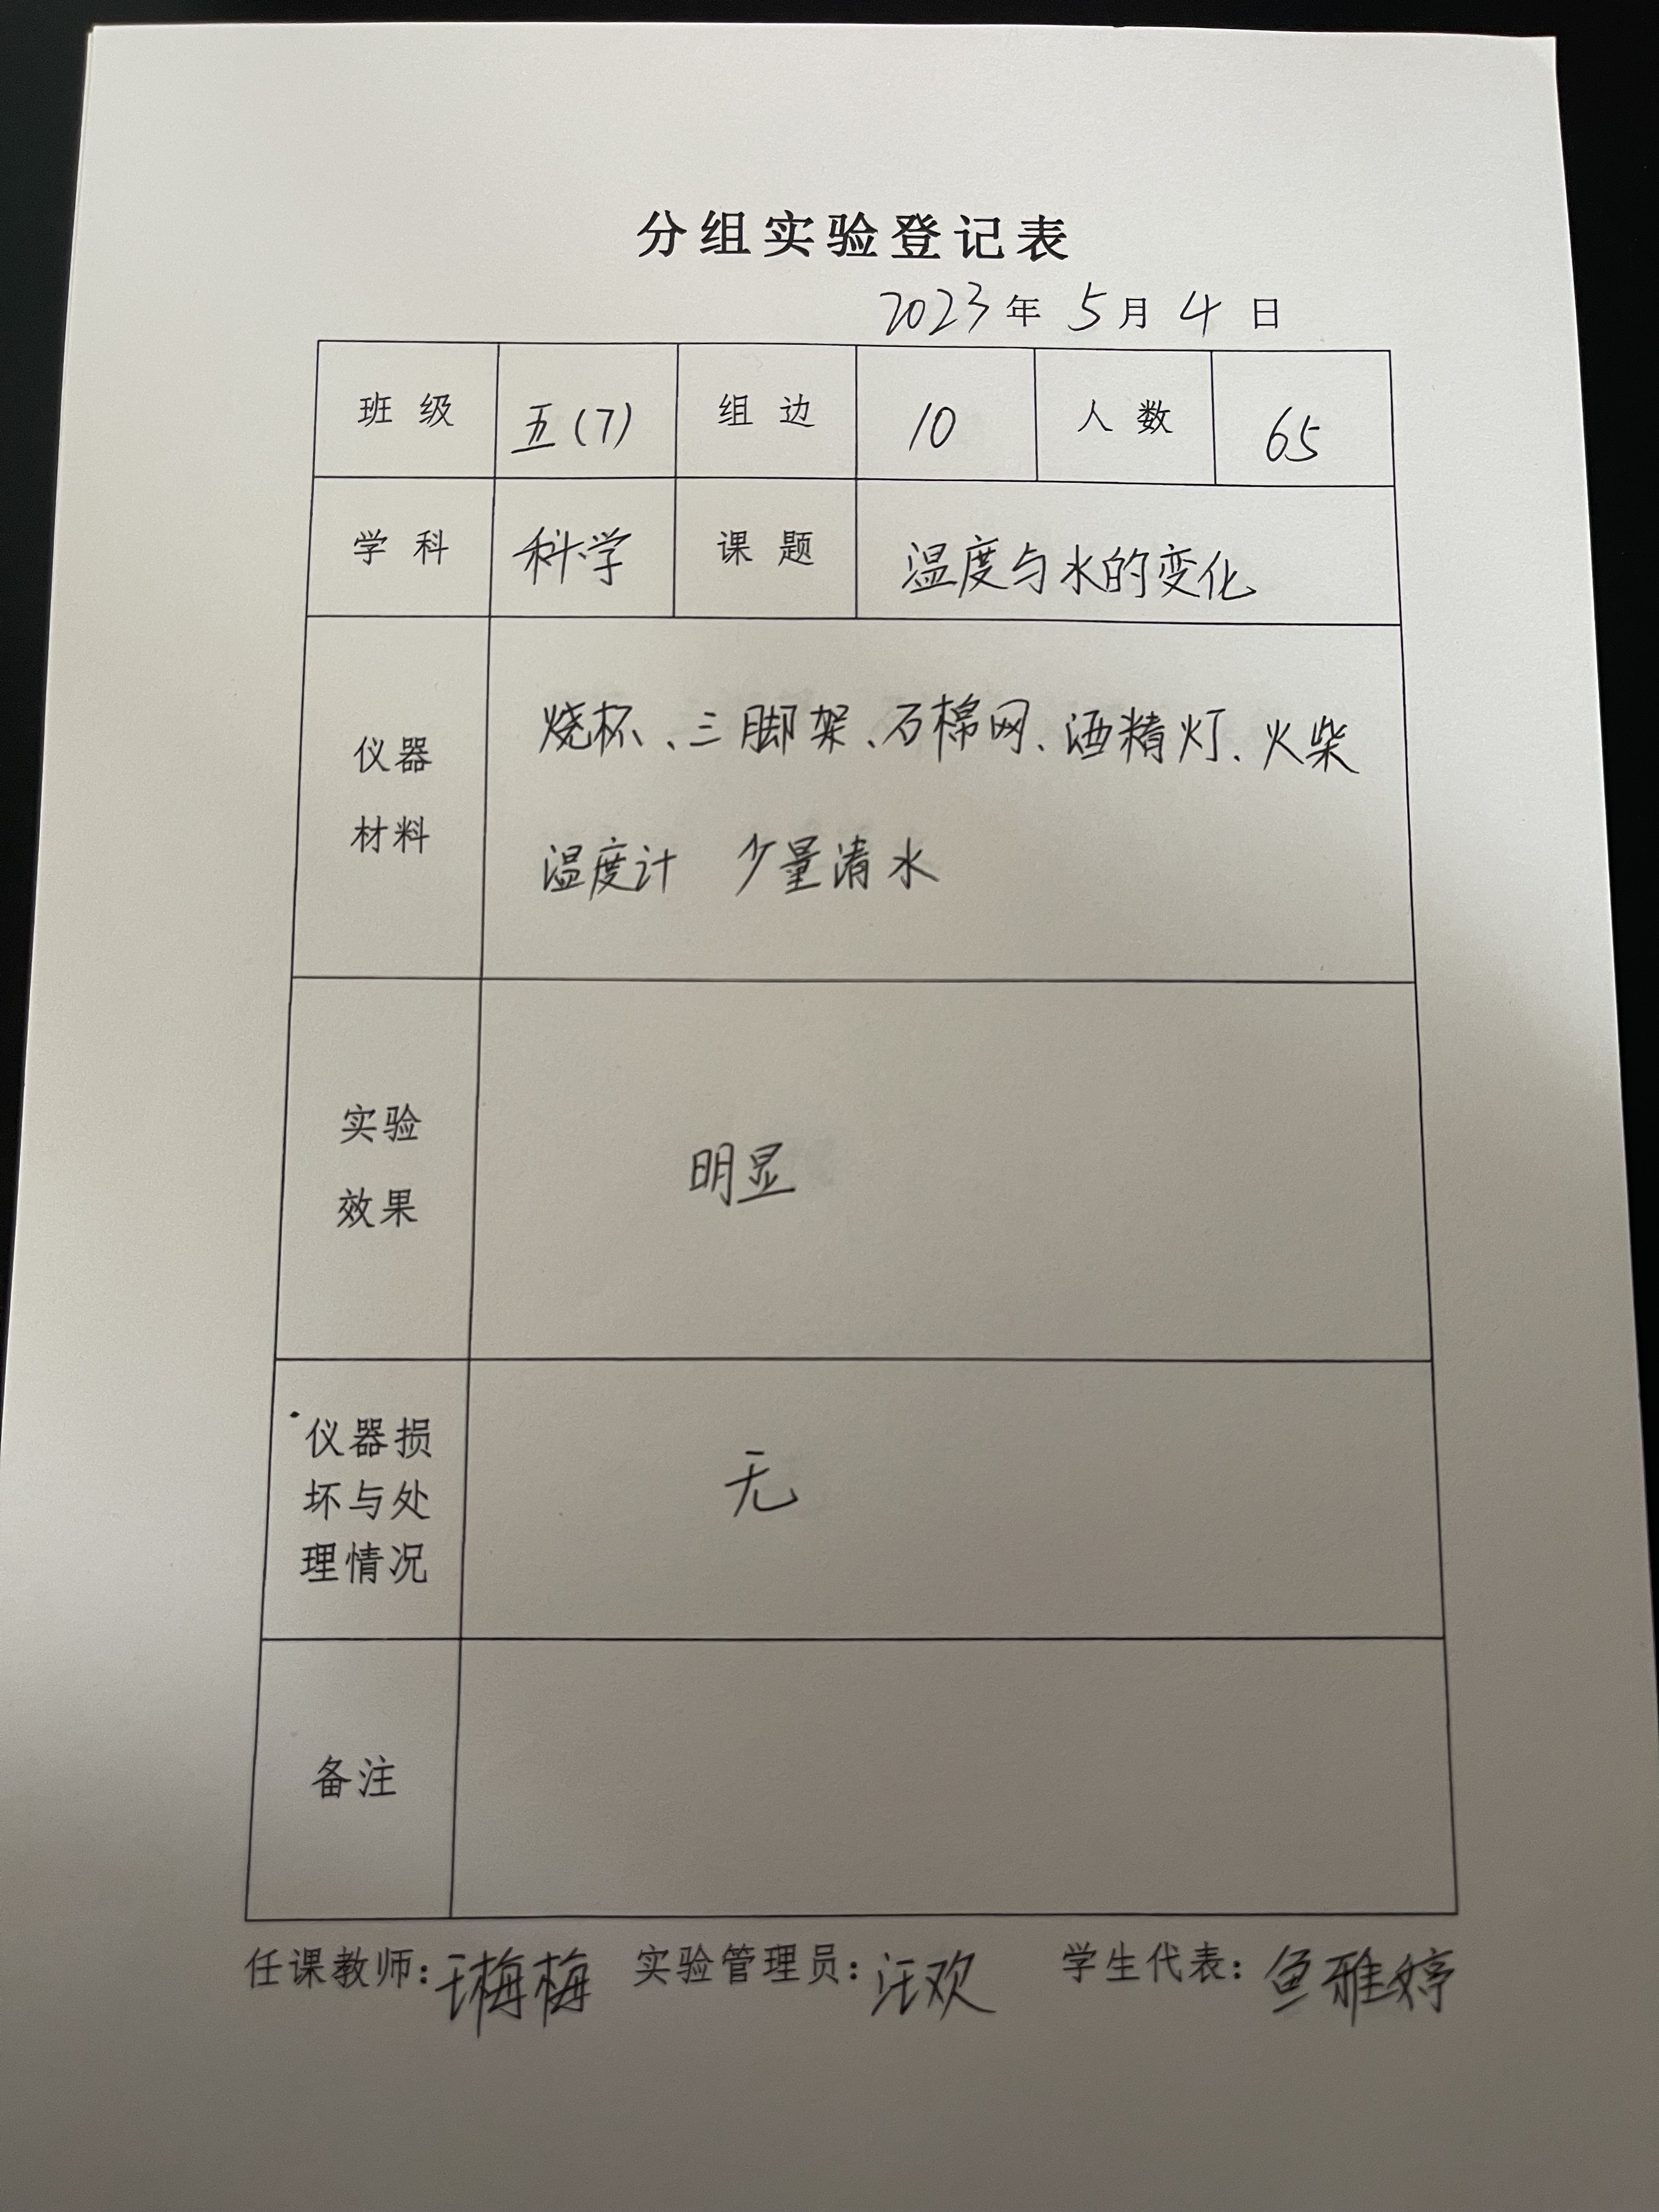 分组实验登记表
2023年 5月 4日
班级 五(7) 组边 10 人数 65
学科 科学 课题 温度与水的变化
仪器
材料
烧杯、三脚架、石棉网、酒精灯、火柴
温度计 少量清水
实验
效果
明显
仪器损
坏与处
理情况
无
备注
任课教师:王梅梅 实验管理员:汪欢 学生代表:鱼雅婷